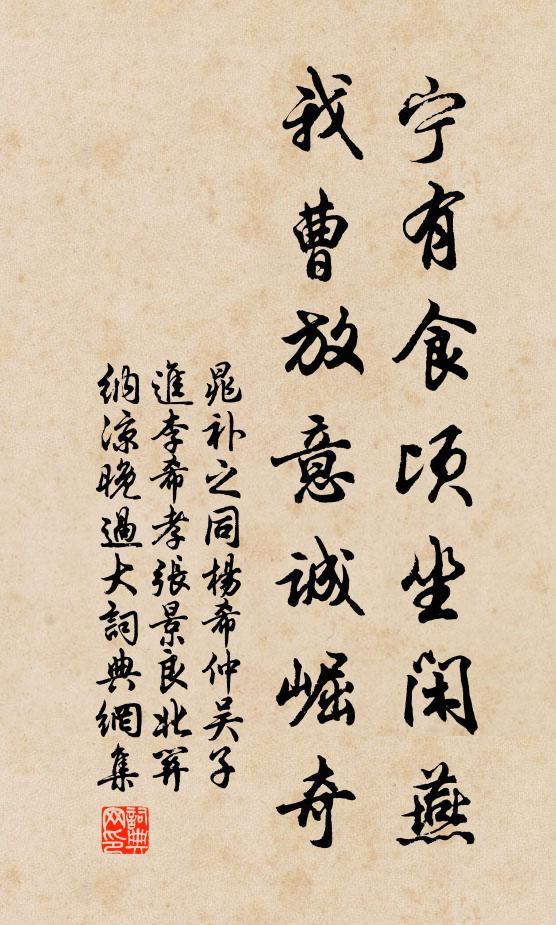 宁有食顷坐闲燕
我曹放意诚崛奇
晁补之同杨希仲吴子
進李希孝張景良北榭
納凉晚過大詞典網集
詞典网印